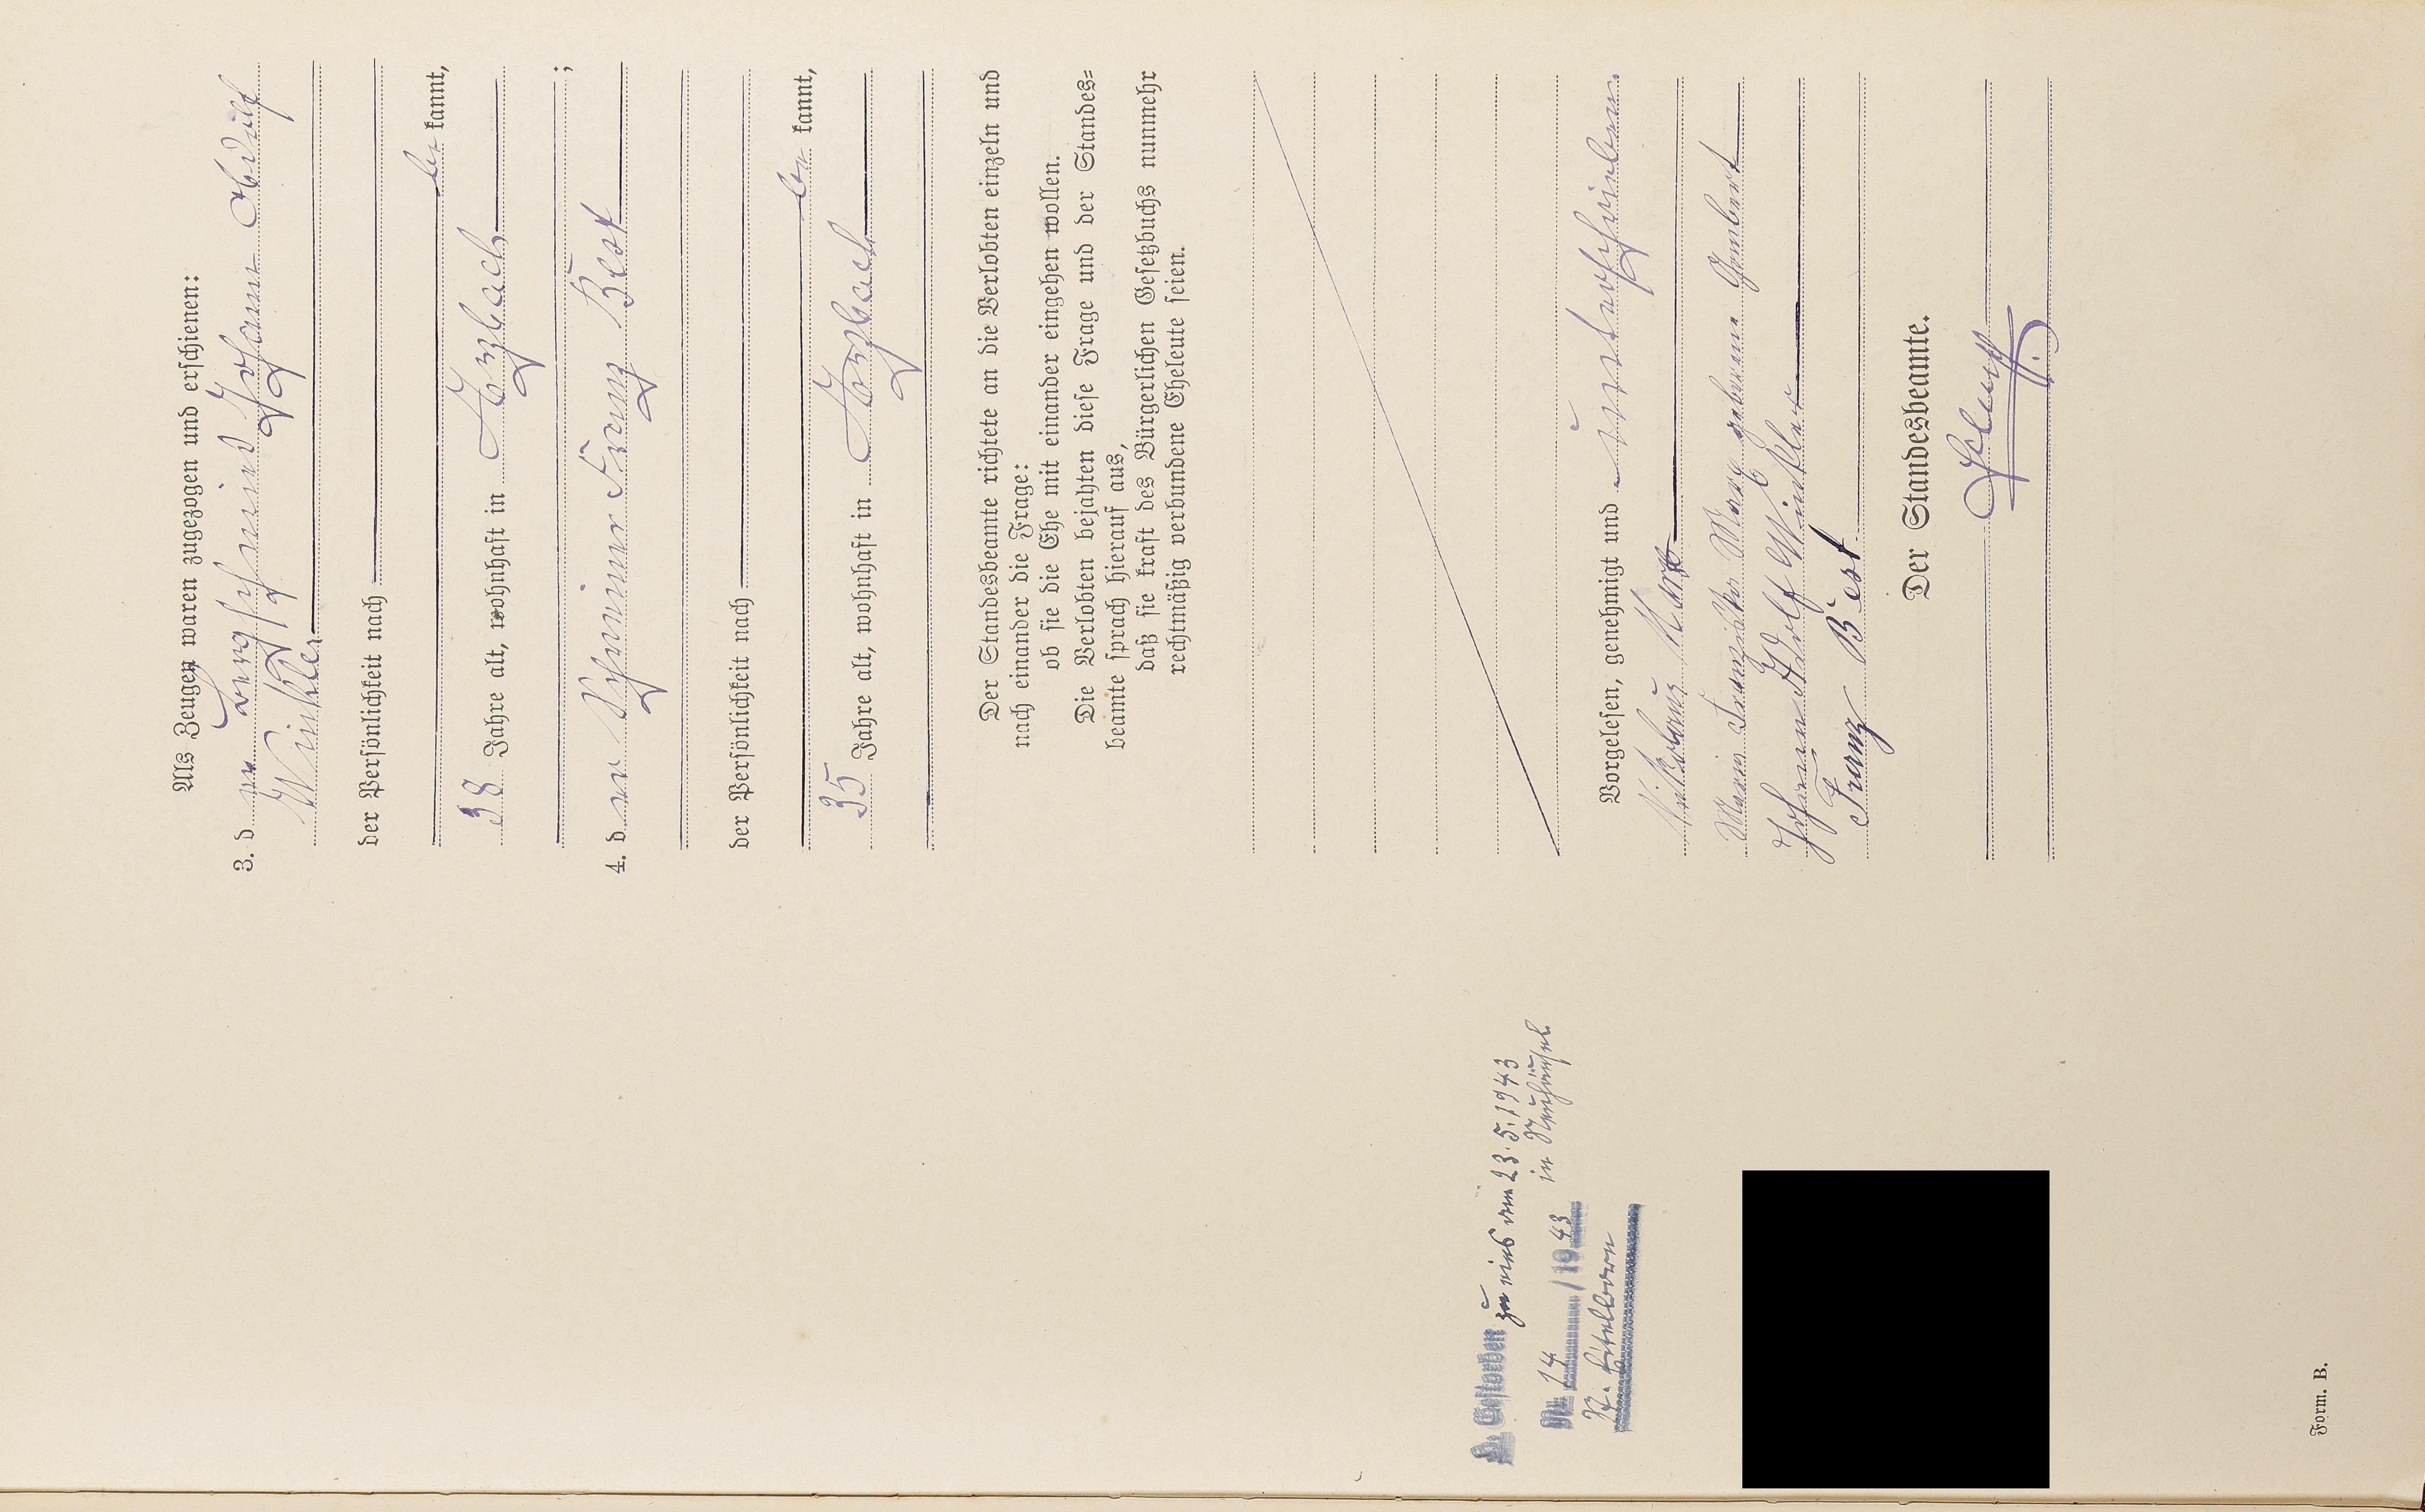 Als Zeugen waren zugezogen und erschienen:
3. der Bergschmied Johann Adolf
Winkler
der Persönlichkeit nach
be kannt,
38 Jahre alt, wohnhaft in Arzbach
;
4. der Schreiner Franz Best
der Persönlichkeit nach
be kannt,
35 Jahre alt, wohnhaft in Arzbach
Der Standesbeamte richtete an die Verlobten einzeln und
nach einander die Frage:
ob sie die Ehe mit einander eingehen wollen.
Die Verlobten bejahten diese Frage und der Standes=
beamte sprach hierauf aus,
daß sie kraft des Bürgerlichen Gesetzbuchs nunmehr
rechtmäßig verbundene Eheleute seien.
Vorgelesen, genehmigt und unterschrieben.
Nikolaus Marx
Maria Franziska Marx geborene Gombert
Johann Adolf Winkler
Franz Best
Der Standesbeamte.
Gestorben zu eins am 23.5.1943
Nr. 14 /1943 in Neuhäusel
St. A. Eitelborn
Form. B.